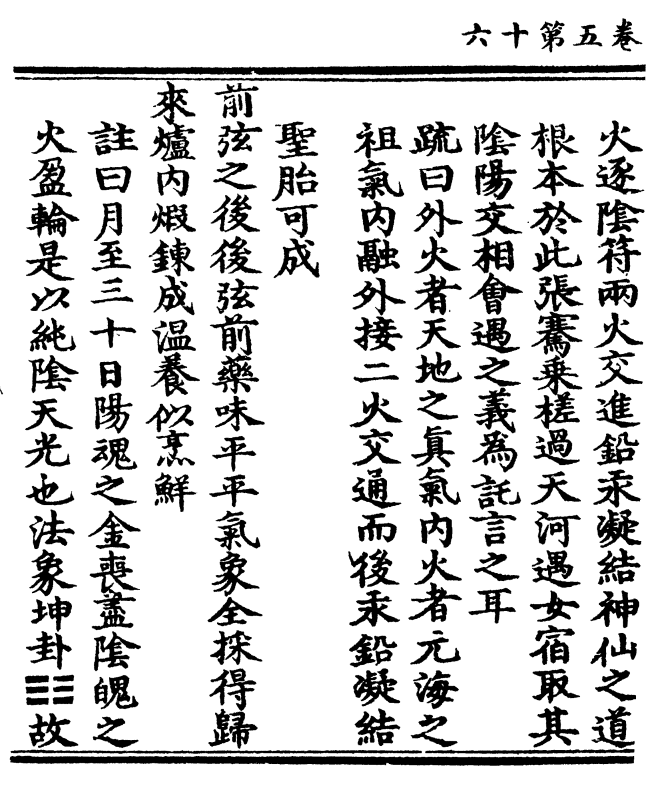 卷五第十六
火逐陰符兩火交進鉛汞凝結神仙之道
根本於此張騫乘槎過天河遇女宿取其
陰陽交相會遇之義為託言之耳
䟽曰外火者天地之真氣內火者元海之
祖氣內融外接二火交通而後汞鉛凝結
聖胎可成
前弦之後後弦前藥味平平氣象全採得歸
來爐內煆鍊成温養似烹鮮
註曰月至三十日陽魂之金喪盡陰魄之
火盈輪是以純陰天光也法象坤卦☷故